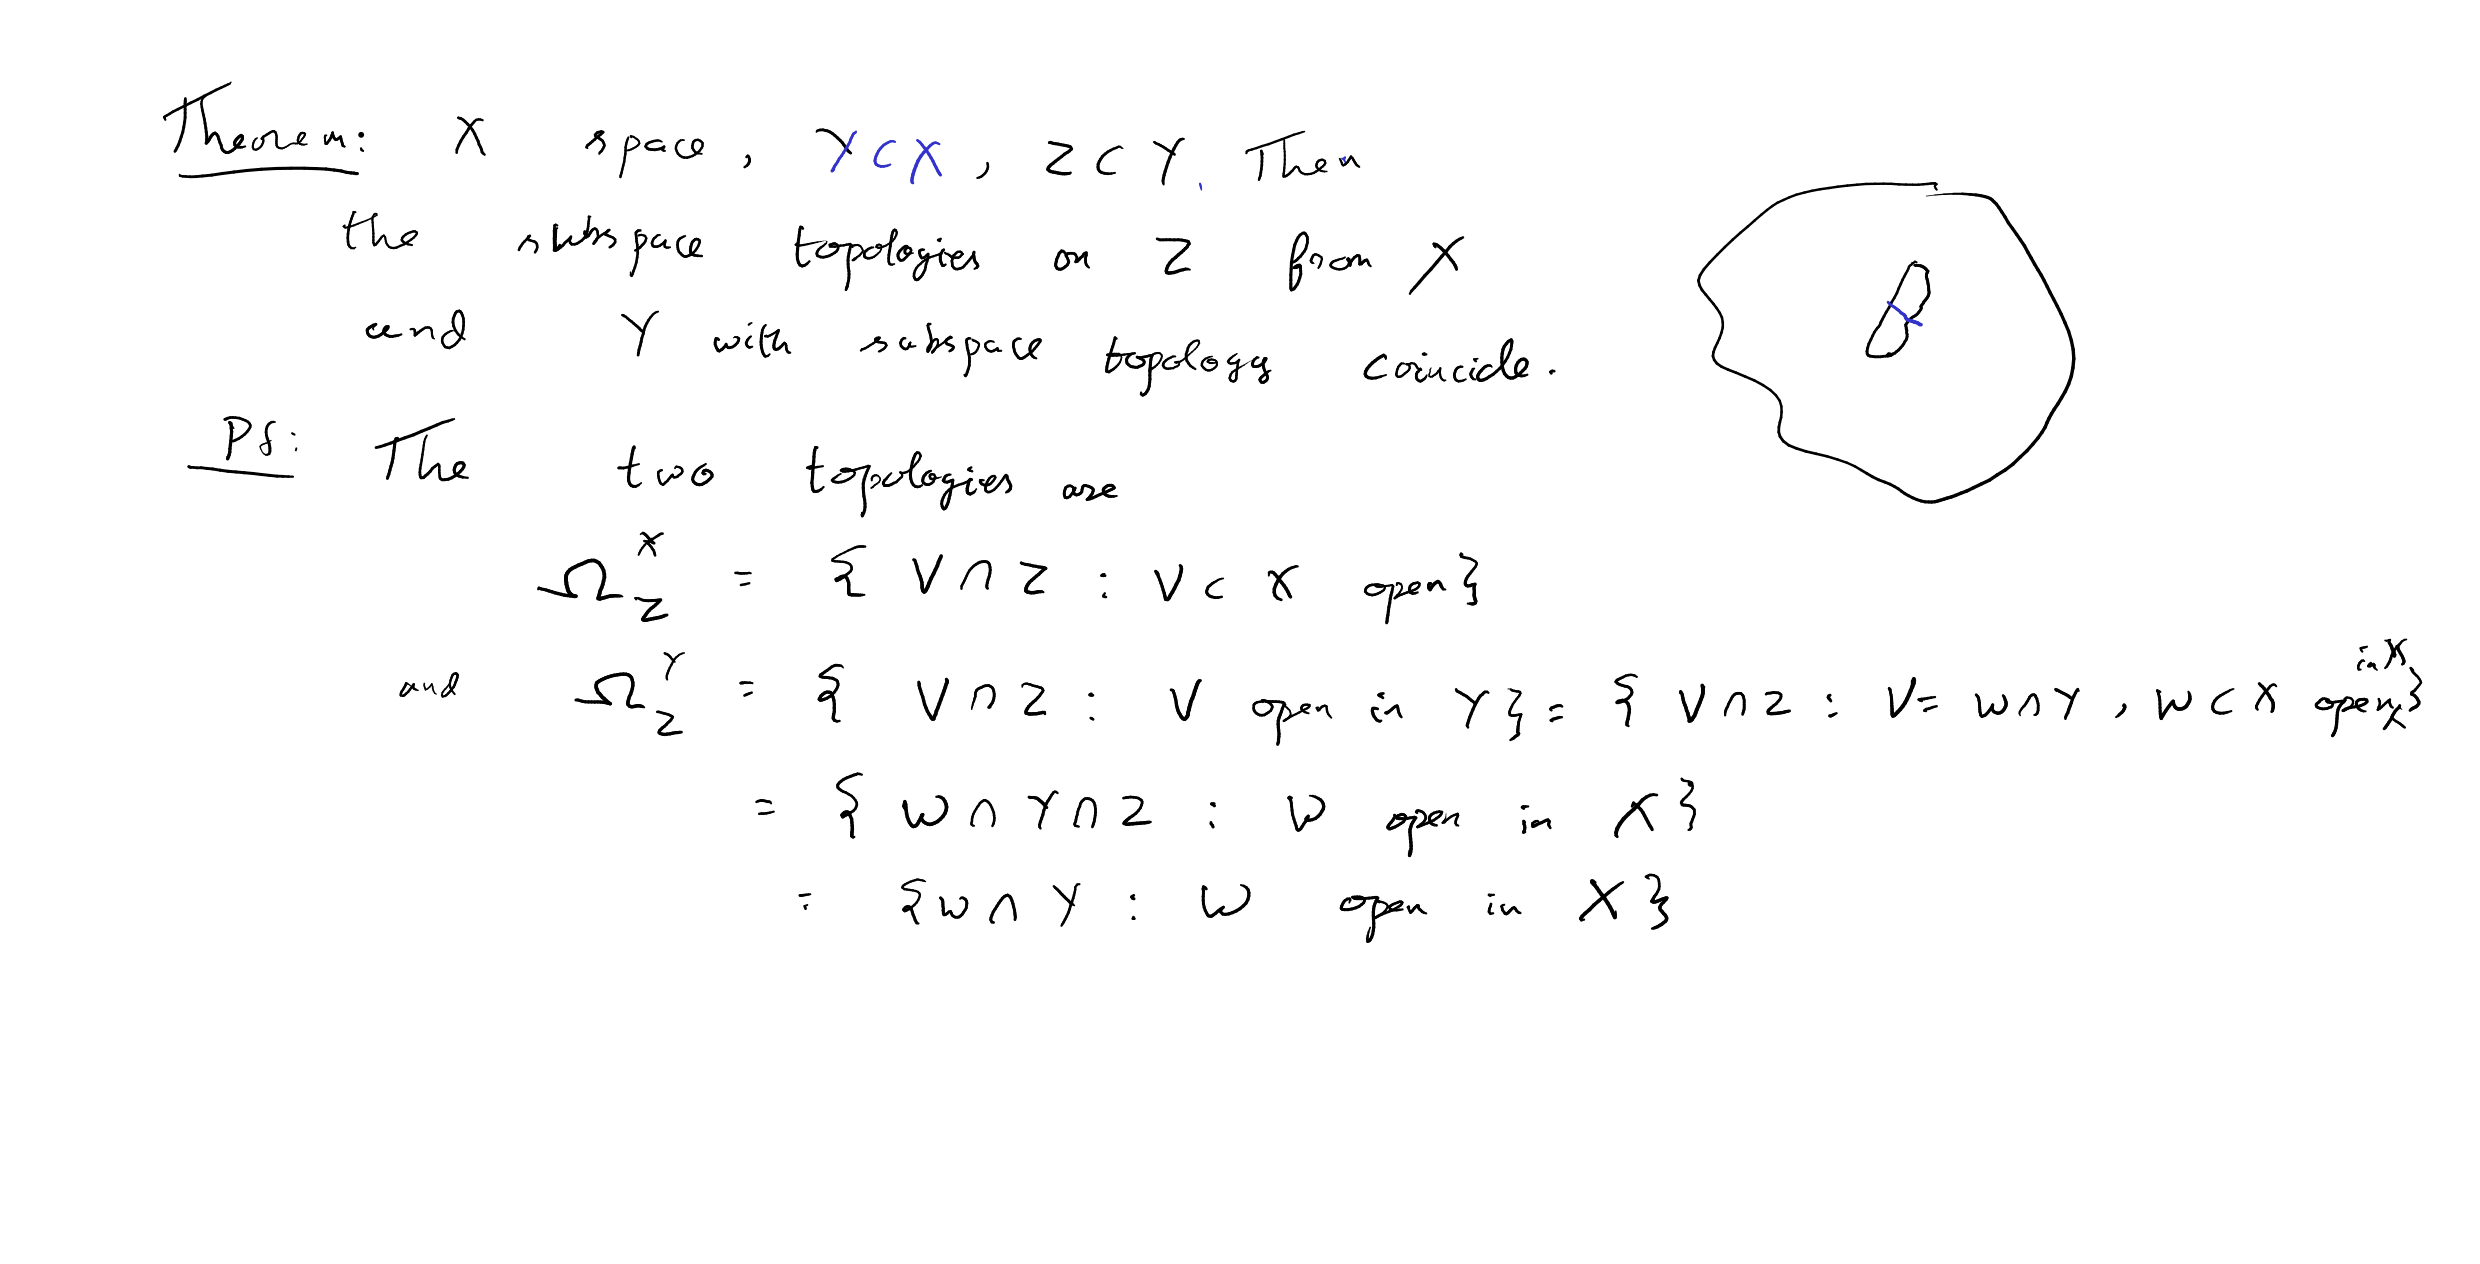 Theorem: X space, Y ⊂ X, Z ⊂ Y. Then
the subspace topologies on Z from X
and Y with subspace topology coincide.
Pf: The two topologies are
Ω_Z^X = { V ∩ Z : V ⊂ X open}
and Ω_Z^Y = { V ∩ Z : V open in Y} = { V ∩ Z : V = W ∩ Y, W ⊂ X open in X}
= { W ∩ Y ∩ Z : W open in X}
= {W ∩ Y : W open in X}